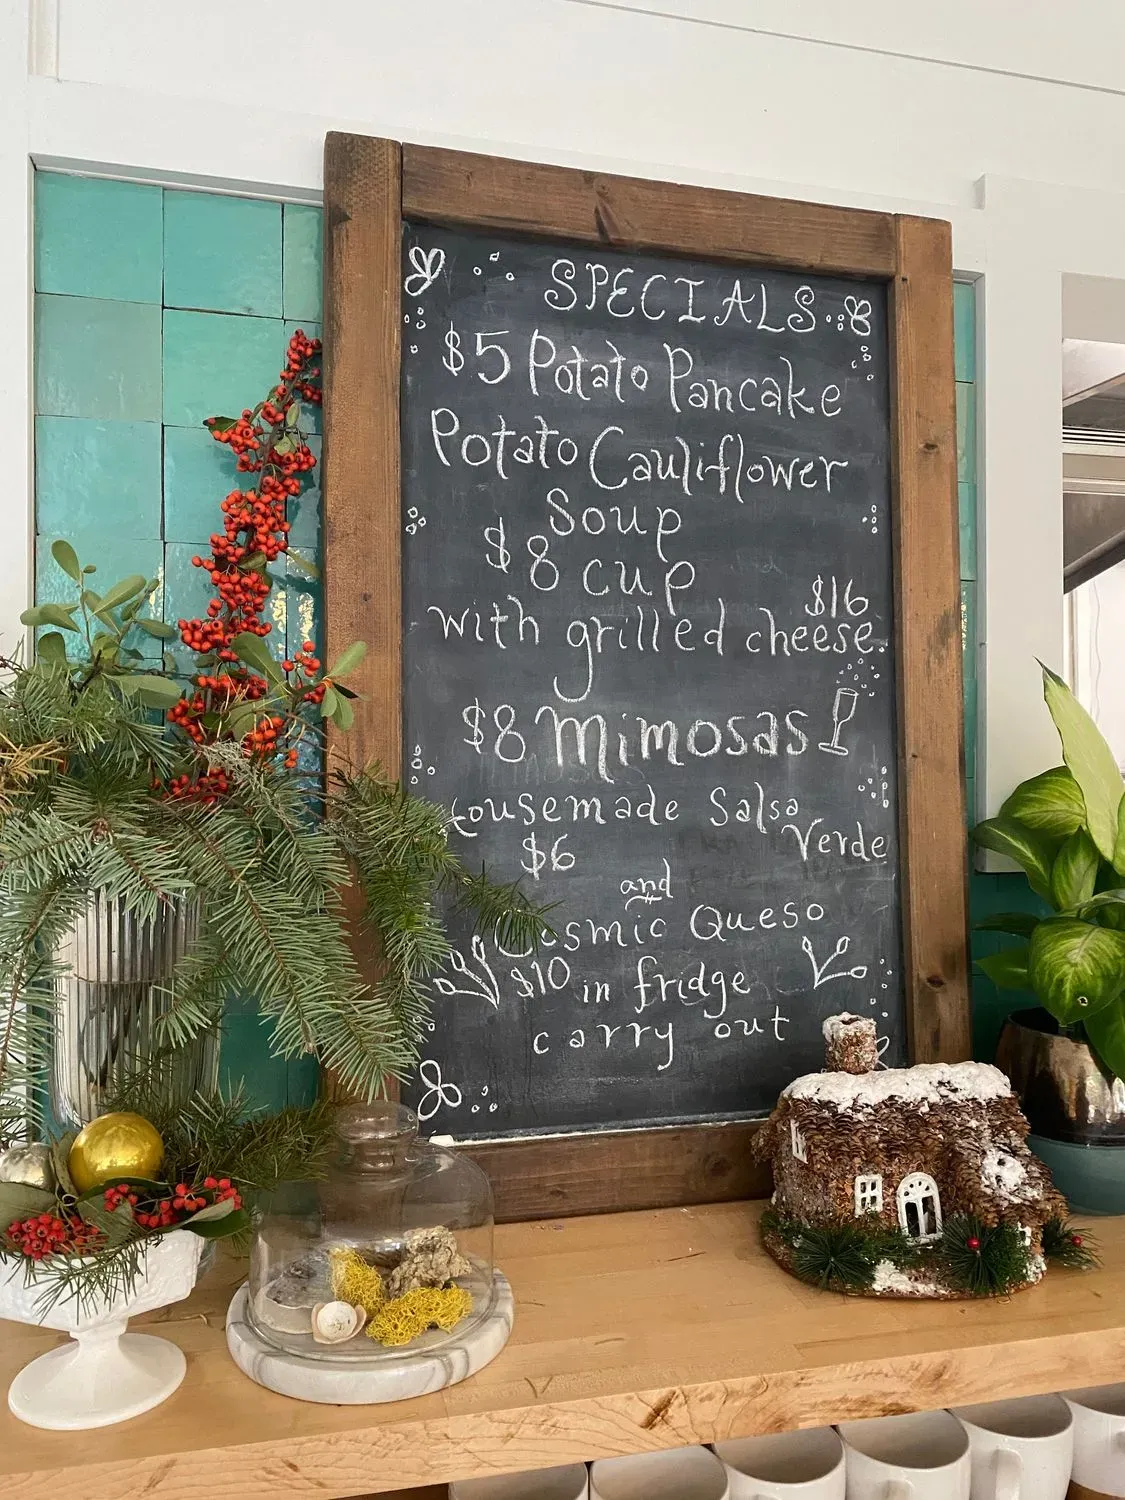 SPECIALS
$5 Potato Pancake
Potato Cauliflower
Soup
$8 cup
$16
with grilled cheese.
$8 Mimosas
Housemade Salsa
Verde
$6
and
Cosmic Queso
$10 in fridge
carry out